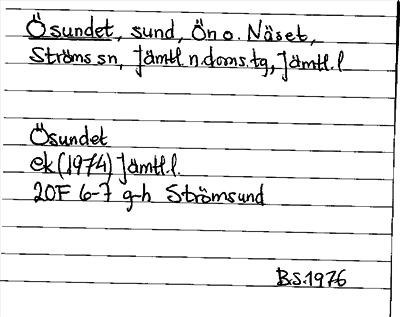 Ösundet, sund, Ön o. Näset,
Ströms sn, Jämtl n.doms.tg, Jämtl.l
Ösundet
ek (1974) Jämtl.l.
20F 6-7 g-h Strömsund
B.S.1976